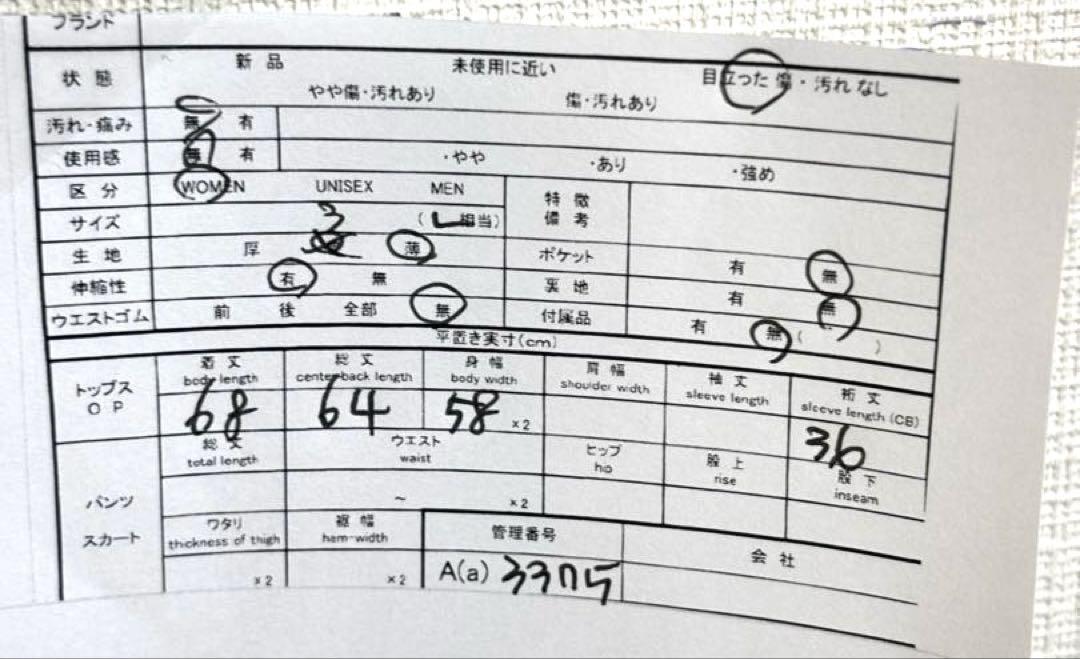 ブランド
状態 新品 未使用に近い 目立った傷・汚れなし
やや傷・汚れあり 傷・汚れあり
汚れ・痛み 無 有
使用感 無 有 ・やや ・あり ・強め
区分 WOMEN UNISEX MEN 特徴
備考
サイズ 3 (L相当)
生地 厚 薄 ポケット 有 無
伸縮性 有 無 裏地 有 無
ウエストゴム 前 後 全部 無 付属品 有 無 ( )
平置き実寸(cm)
トップス
OP
着丈 総丈 身幅 肩幅 袖丈 裄丈
body length center back length body width shoulder width sleeve length sleeve length (CB)
68 64 58 ×2 36
パンツ
スカート
総丈 ウエスト ヒップ 股上 股下
total length waist hip rise inseam
~ ×2
ワタリ 裾幅 管理番号 会社
thickness of thigh hem-width
×2 ×2 A(a) 3375